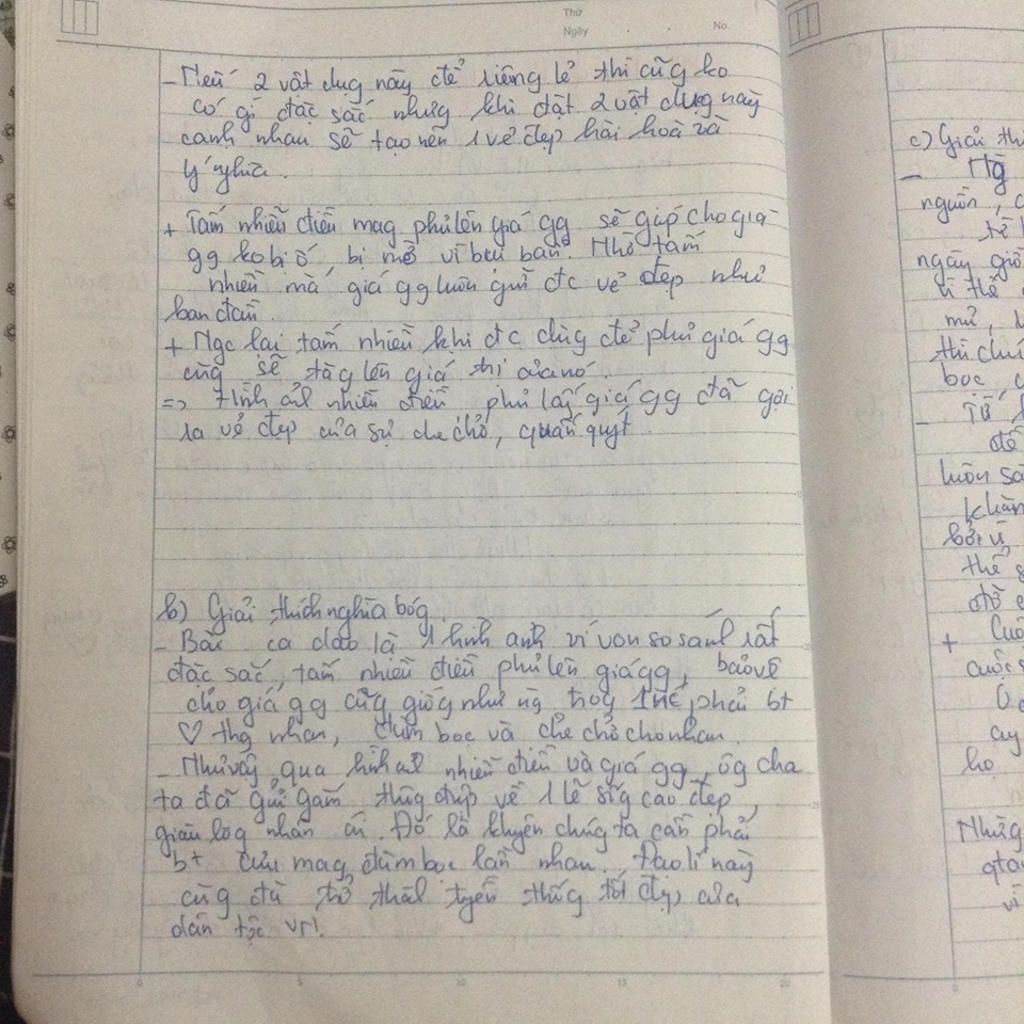 Thứ
Ngày
No.
- Nếu 2 vật dụg này để riêng lẻ thì cũg ko
có gì đặc sắc nhưg khi đặt 2 vật dụg này
cạnh nhau sẽ tạo nên 1 vẻ đẹp hài hoà và
ý nghĩa.
+ Tấm nhiễu điều mag phủ lên giá gg sẽ giúp cho giá
gg ko bị ố, bị mờ vì bụi bẩn. Nhờ tấm
nhiễu mà giá gg luôn giữ đc vẻ đẹp như
ban đầu.
+ Ngc lại tấm nhiễu khi đc dùg để phủ giá gg
cũg sẽ tăg lên giá trị của nó.
=> Hình ảh nhiễu điều phủ lấy giá gg đã gợi
ra vẻ đẹp của sự che chở, quấn quýt.
b) Giải thích nghĩa bóg
- Bài ca dao là 1 hình ảnh ví von so sánh rất
đặc sắc, tấm nhiễu điều phủ lên giá gg, bảo vệ
cho giá gg cũg giốg như ng trog 1 nc phải bt
♡ thg nhau, đùm bọc và che chở cho nhau.
- Như vậy, qua hình ảh nhiễu điều và giá gg, ôg cha
ta đã gửi gắm thôg điệp về 1 lẽ sốg cao đẹp,
giàu lòg nhân ái. Đó là khuyên chúg ta cần phải
bt cưu mag, đùm bọc lẫn nhau. Đạo lí này
cũg đã trở thàh tryền thốg tốt đẹp của
dân tộc VN.
c) Giải th
nguồn, c
ngày giờ
vì thế
mử,
thì chú
bọc, c
- Từ
để
luôn sà
khăn
bởi vì
thế
đỡ
+ Cuộ
cuộc s
họ
Nhữg
vì
0 5 10 15 20